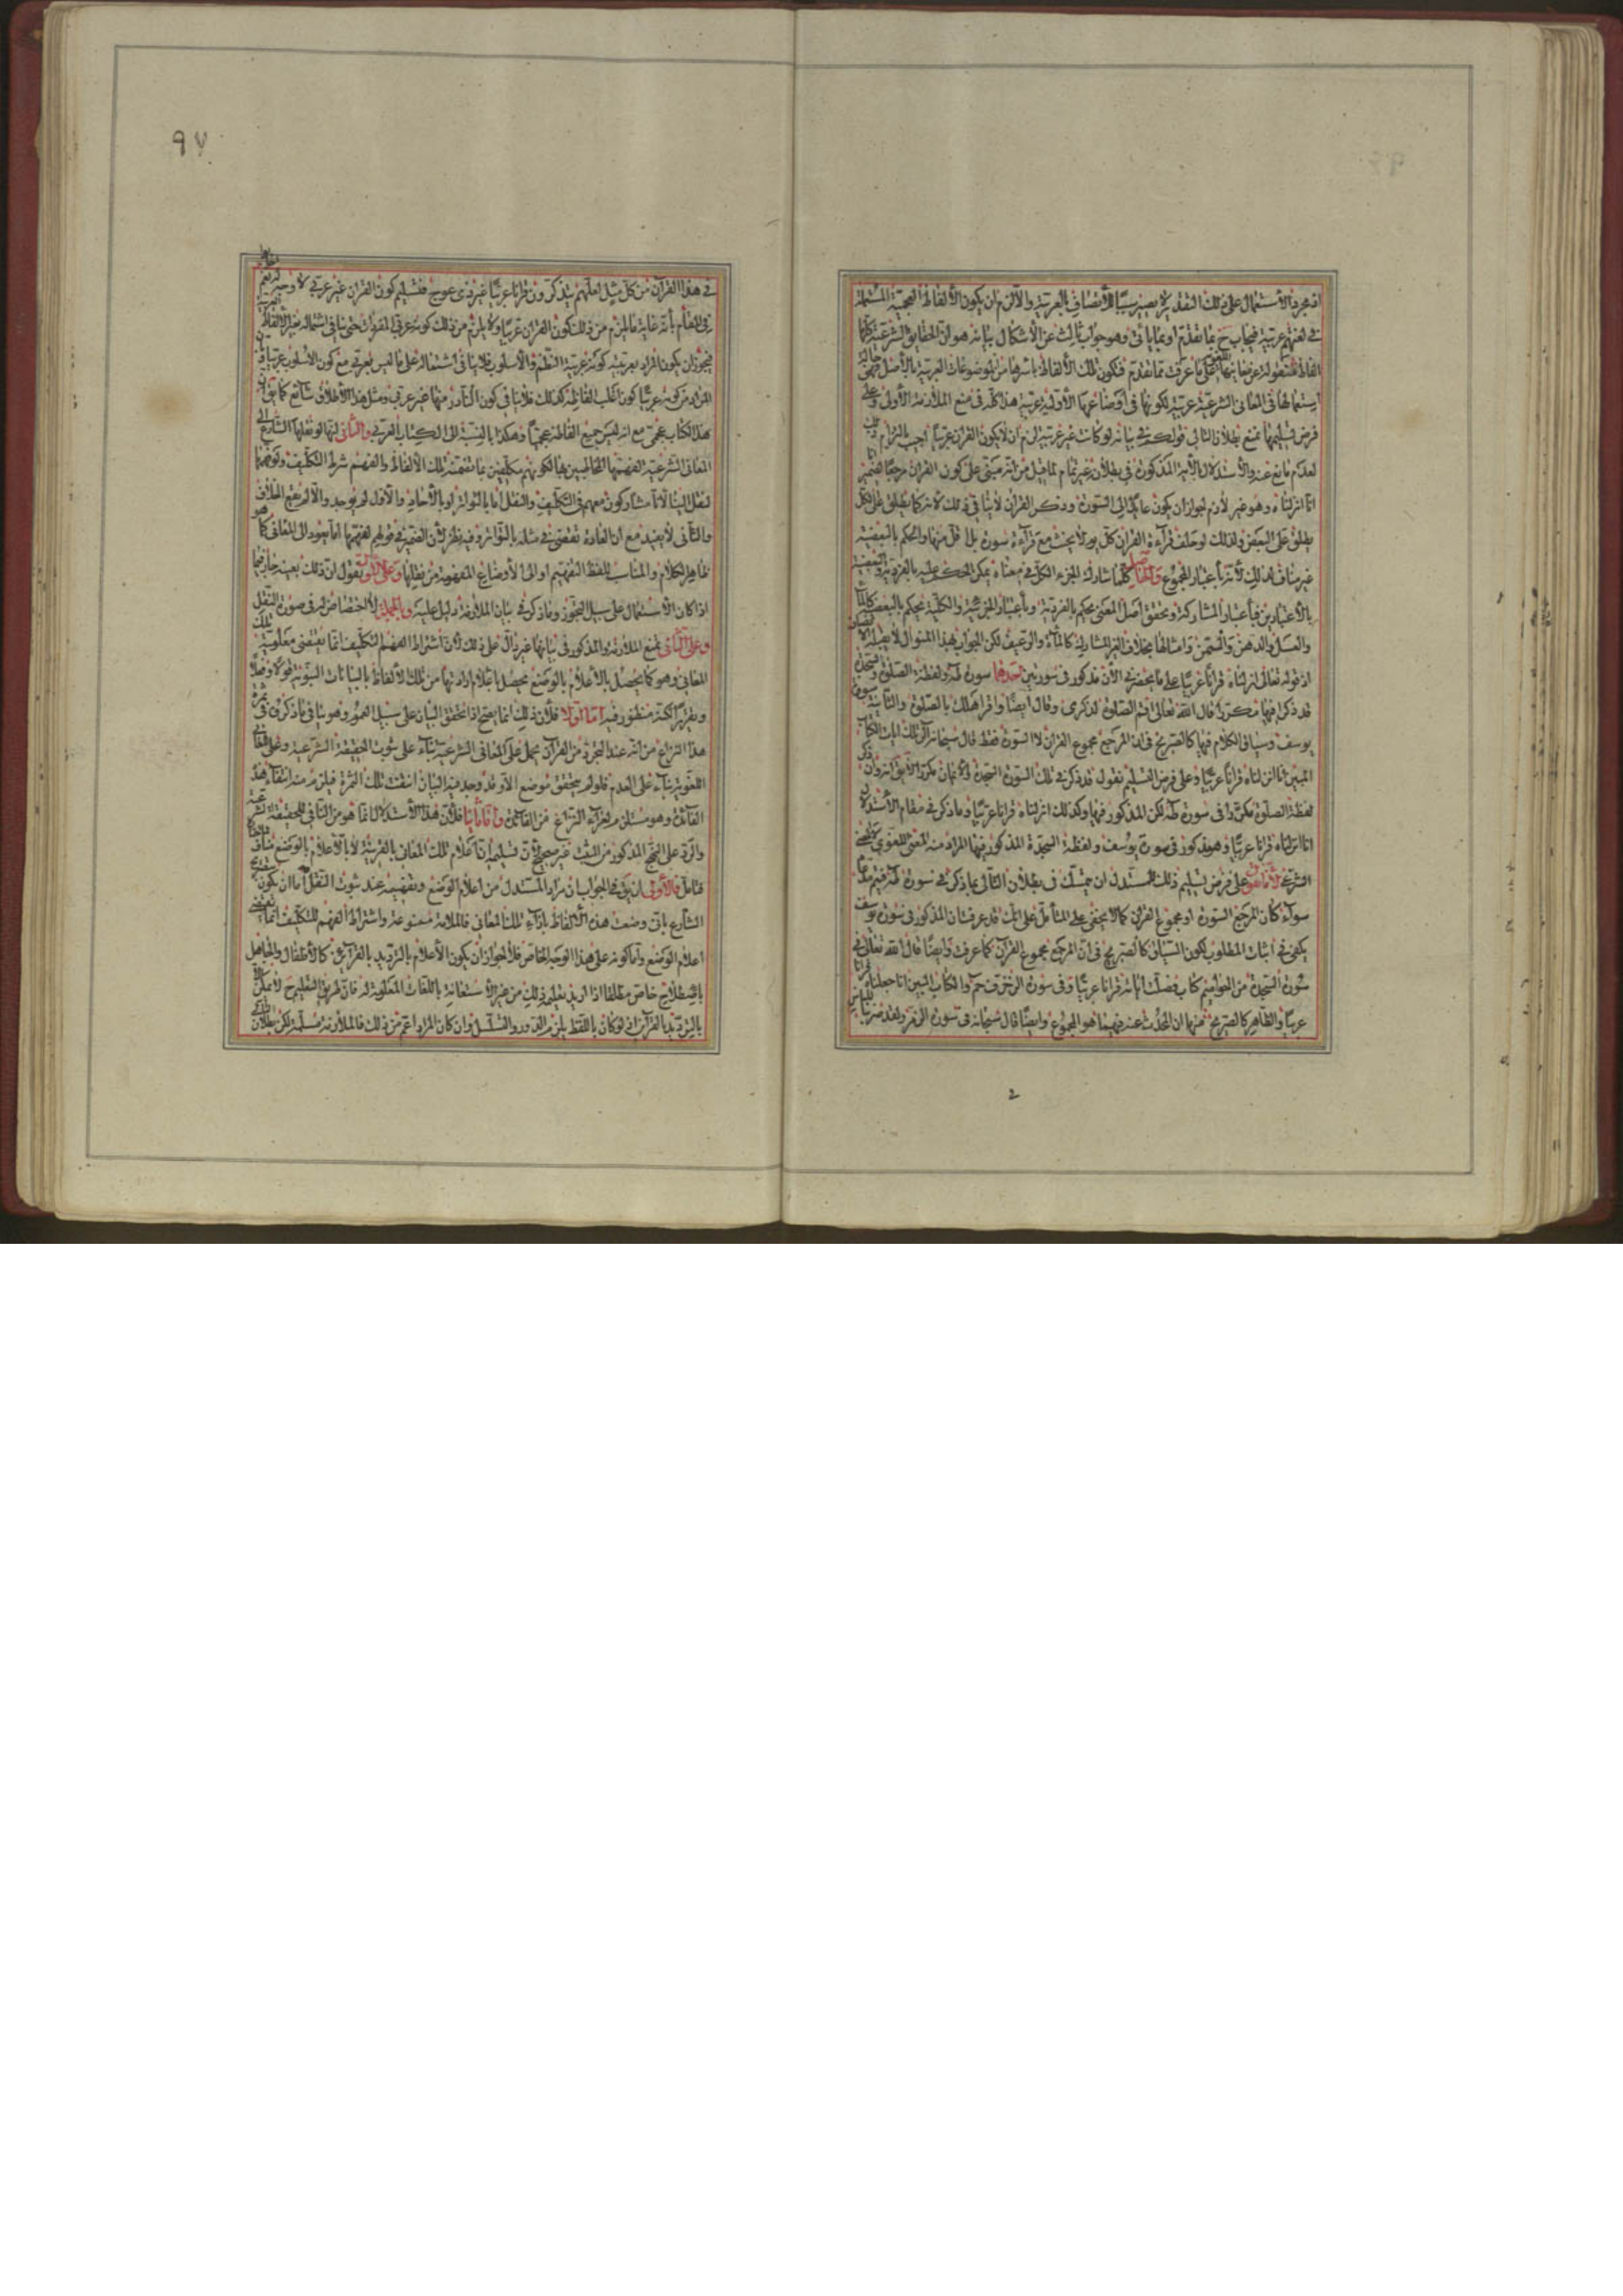 اذ مجرد الاستعمال على ذلك التقدير لا يصير سببا للاتصاف بالعربية والا لزم ان يكون الالفاظ العجمية المشتملة
في لغتهم عربية فيجاب ح بما تقدم او بما ياتي وهو جواب ثالث عن الاشكال بيانه هو ان الحقايق الشرعية كلها
الفاظ منقولة عن معانيها على ما عرفت مما تقدم فتكون تلك الالفاظ باسرها من الموضوعات العربية بالاصل فهي حالة
استعمالها في المعاني الشرعية عربية لكونها في اوضاعها الاولية عربية هذا كله في منع الملازمة الاولى وعلى
فرض تسليمها نمنع بطلان التالي قولك في بيانه لو كانت غير عربية لزم ان لا يكون القران عربيا اجيب بالتزام ذلك
لعدم مانع عنه والاستدلال بالاية المذكورة في بطلانه غير تمام لما قيل من انه مبني على كون القران مرجعا لضمير
انا انزلناه وهو غير لازم لجواز ان يكون عائدا الى السورة وذكر القران لا ينافي ذلك لانه كما يطلق على الكل
يطلق على البعض ولذلك لو حلف قراءة القران كل يوم لا يحنث مع قراءة سورة بل اقل منها والحكم بالبعضية
غير مناف لذلك لانه باعتبار المجموع والحاصل كلما شارك الجزء الكل في معناه يمكن الحكم عليه بالفردية والبعضية
بالاعتبارين فباعتبار المشاركة وتحقق اصل المعنى يحكم بالفردية وباعتبار الجزئية والكلية يحكم بالبعضية كالماء
والعسل والدهن والسمن وامثالها بخلاف الغير المشارك كالمائة والرغيف لكن الجواب بهذا المنوال لا يخلو
اذ قوله تعالى انزلناه قرانا عربيا على ما يحضرني الان مذكور في سورتين احدهما سورة طه ولفظة الصلوة والسجدة
قد ذكر فيها مكررا قال الله تعالى اقم الصلوة لذكري وقال ايضا وامر اهلك بالصلوة والثانية سورة
يوسف وسياق الكلام فيها كالصريح في ان المرجع مجموع القران لا السورة فقط قال سبحانه الر تلك ايات الكتاب
المبين انا انزلناه قرانا عربيا وعلى فرض التسليم نقول قد ذكر في تلك السورة السجدة
لفظة الصلوة مكررا في سورة طه لكن المذكور فيها وكذلك انزلناه قرانا عربيا وما ذكر في مقام الاستدلال
انا انزلناه قرانا عربيا وهو مذكور في سورة يوسف ولفظة السجدة المذكور فيها المراد منه المعنى اللغوي
الشرعي لانا نقول على فرض تسليم ذلك للمستدل ان يتمسك في بطلان التالي بما ذكر في سورة طه فيتم مدعاه
سواء كان المرجع السورة او مجموع القران كما لا يخفى على المتامل على انك قد عرفت ان المذكور في سورة يوسف
يكفي في اثبات المطلوب لكون السياق كالصريح في ان المرجع مجموع القران كما عرفت وايضا قال الله تعالى في
سورة السجدة من الحواميم كتاب فصلت اياته قرانا عربيا وفي سورة الزخرف حم والكتاب المبين انا جعلناه قرانا
عربيا والظاهر كالصريح منهما ان المحدث عنه فيهما هو المجموع وايضا قال سبحانه في سورة الزمر ولقد ضربنا للناس
٩٧
في هذا القران من كل مثل لعلهم يتذكرون قرانا عربيا غير ذي عوج فتسليم كون القران غير عربي لا وجه له نعم
في المقام بانه غاية ما لزم من ذلك كون القران عربيا ولا يلزم من ذلك كونه عربي المفردات حتى ينافي اشتماله لغير الالفاظ العربية
فيجوز ان يكون المراد بعربيته كونه عربية النظم والاسلوب فلا ينافي اشتماله على ما ليس بعربي مع كون الاسلوب عربيا
المراد من كونه عربيا كون اغلب الفاظه كذلك فلا ينافي كون النادر منها غير عربي ومثل هذا الاطلاق شائع كما يق ان
هذا الكتاب عجمي مع انه ليس جميع الفاظه عجميا وهكذا بالنسبة الى الكتاب العربي والثاني انها لو نقلها الشارع الى
المعاني الشرعية لفهمها المخاطبين بها لكونهم مكلفين بما تضمنه تلك الالفاظ والفهم شرط التكليف ولو فهمها
لنقل الينا لانا مشاركون معهم في التكليف والنقل اما بالتواتر او بالاحاد والاول لم يوجد والا لم يقع الخلاف
والثاني لا يفيد مع ان العادة تقضي في مثله بالتواتر وفيه نظر لان الضمير في قولهم لفهمها اما يعود الى المعاني كما هو
ظاهر الكلام والمناسب للفظ التفهيم او الى الاوضاع المفهومة من نقلها وعلى الاول نقول ان ذلك بعينه جار فيما
اذا كان الاستعمال على سبيل التجوز وما ذكر في بيان الملازمة دليل عليه وبالجملة لا اختصاص له في صورة النقل
وعلى الثاني نمنع الملازمة والمذكور في بيانها غير دال على ذلك لان اشتراط الفهم للتكليف انما يقتضي معلومية تلك
المعاني وهو كما يحصل بالاعلام بالوضع يحصل باعلام ارادتها من تلك الالفاظ بالبيانات النبوية قولا وفعلا
وتقريرا لكنه منظور فيه اما اولا فلان ذلك انما يصح اذا تحقق البيان على سبيل العموم وهو ينافي ما ذكروه في ثمرة
هذا النزاع من انه عند التجرد من القراين يحمل على المعاني الشرعية بناء على ثبوت الحقيقة الشرعية وعلى المعاني
اللغوية بناء على العدم فلو لم يتحقق موضع الا وقد وجد فيه البيان انتفت تلك الثمرة فيلزم منه انتفاء هذه
الفائدة وهو مستلزم لعراء النزاع عن الفائدة واما ثانيا فلان هذا الاستدلال انما هو من النافي للحقيقة الشرعية
والرد على النهج المذكور من المثبت غير صحيح لان تسليم ان اعلام تلك المعاني بالقرينة لا بالاعلام بالوضع مناف
فتامل فالاولى ان يق في الجواب ان مراد المستدل من اعلام الوضع وتفهيمه عند ثبوت النقل اما ان يكون بتصريح
الشارع باني وضعت هذه الالفاظ بازاء تلك المعاني فالملازمة ممنوعة واشتراط الفهم للتكليف انما يقتضي
اعلام الوضع واما كونه على هذا الوجه الخاص فلا لجواز ان يكون الاعلام بالترديد بالقراين كالاطفال والجاهل
باصطلاح خاص مطلقا اذا اريد تعليمه ذلك من غير الاستعانة باللغات المعلومة له فان طريق التعليم ح لا يمكن الا
بالترديد بالقراين اذ لو كان باللفظ يلزم الدور والتسلسل وان كان المراد اعم من ذلك فالملازمة مسلمة لكن بطلان